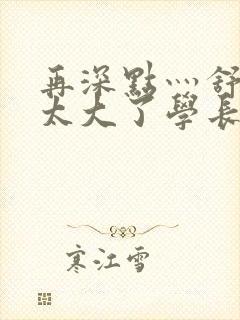 再深點灬舒
太大了學長
寒江雪